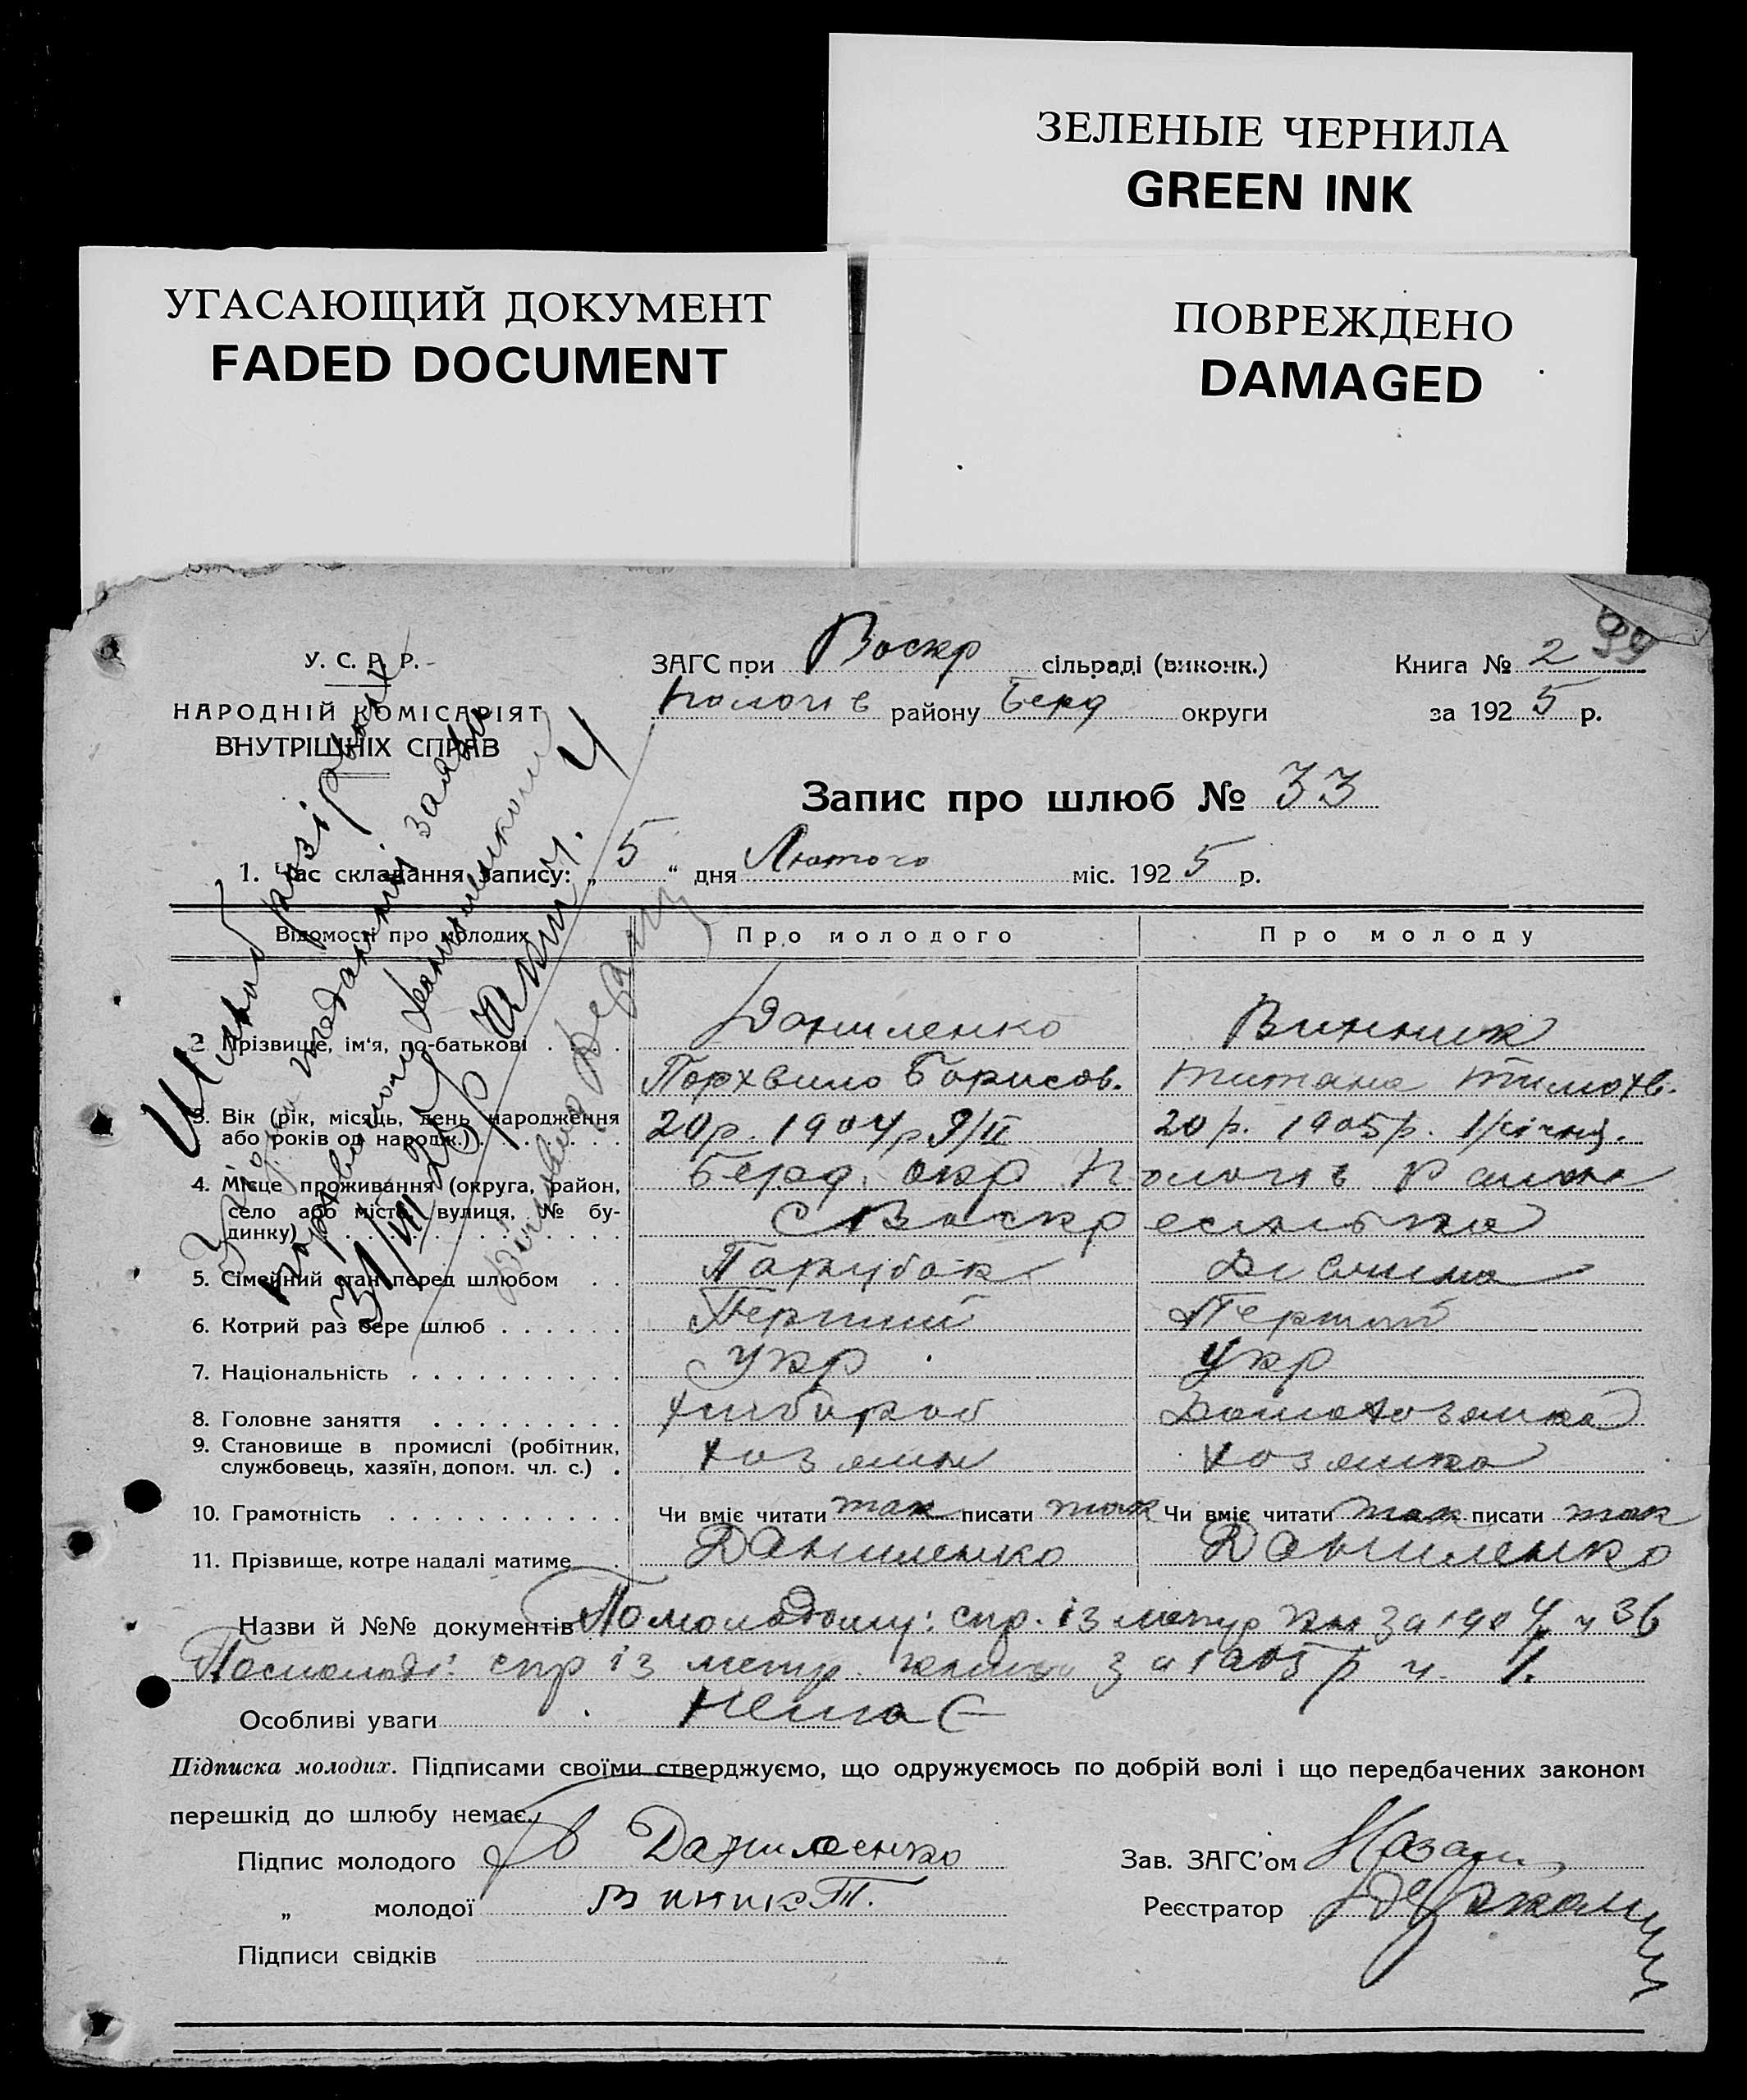 ЗЕЛЕНЫЕ ЧЕРНИЛА
GREEN INK
УГАСАЮЩИЙ ДОКУМЕНТ
FADED DOCUMENT
ПОВРЕЖДЕНО
DAMAGED
99
У. С. Р. Р.
НАРОДНІЙ КОМІСАРІЯТ
ВНУТРІШНІХ СПРАВ
ЗАГС при Воскр сільраді (виконк.)
Пологів району Берд округи
Книга № 2
за 1925 р.
Запис про шлюб № 33
1. Час складання запису: „5“ дня Лютого міс. 1925 р.
Шлюб розірвано
Відомості про молодих
Про молодого
Про молоду
2. Прізвище, ім'я, по-батькові
Даниленко
Винник
Порхвило Борисов.
Титана Тимохв.
3. Вік (рік, місяць, день народження
або років од народж.)
20р. 1904р 9/II
20 р. 1905р. 1/січня.
4. Місце проживання (округа, район,
село або місто, вулиця, № бу-
динку)
Берд. окр Пологів Район
С Воскресенька
5. Сімейний стан перед шлюбом
Парубок
Дівчина
6. Котрий раз бере шлюб
Перший
Перший
7. Національність
Укр
Укр
8. Головне заняття
Хлібороб
Домохозяйка
9. Становище в промислі (робітник,
службовець, хазяїн, допом. чл. с.)
хозяин
хозяйка
10. Грамотність
Чи вміє читати так писати так
Чи вміє читати так писати так
11. Прізвище, котре надалі матиме
Даниленко
Даниленко
Назви й №№ документів По молодому: спр. із метр кн за 1904 ч 36
По молоді: спр із метр. книги за 1905 р ч. 1.
Особливі уваги Немає
Підписка молодих. Підписами своїми стверджуємо, що одружуємось по добрій волі і що передбачених законом
перешкід до шлюбу немає.
Підпис молодого Даниленко
„ молодої Виник Т.
Підписи свідків
Зав. ЗАГС'ом
Реєстратор